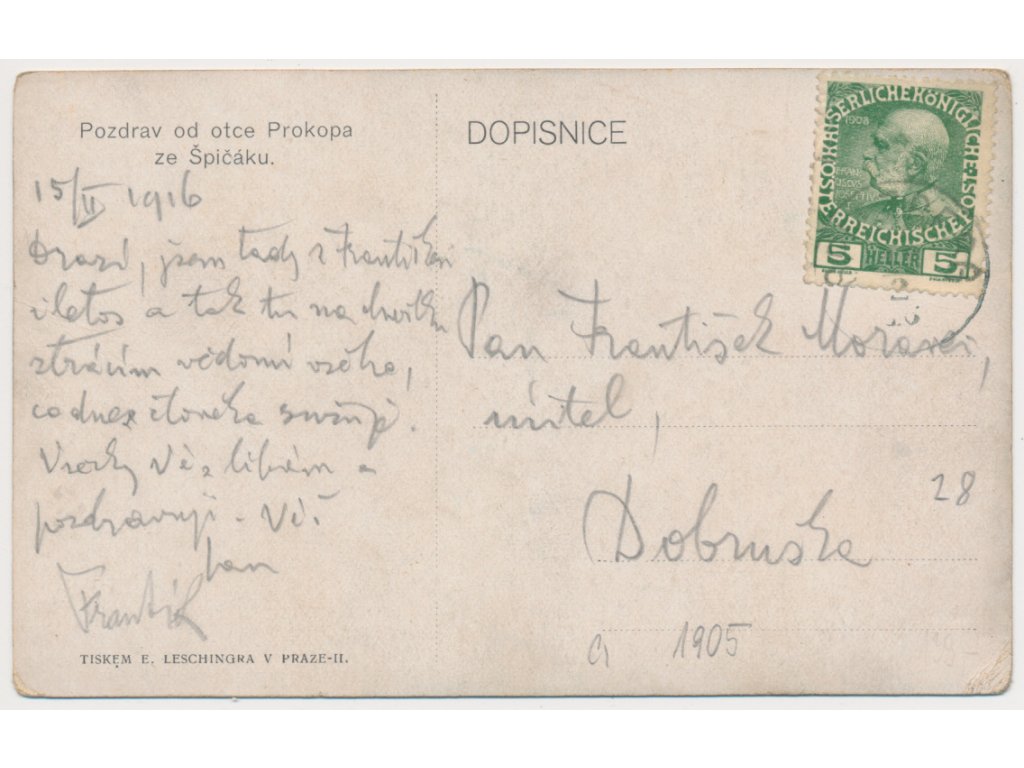 Pozdrav od otce Prokopa
ze Špičáku.
15/II 1916
Drazí, jsem tady s Františkem
i letos a tak tu na chvilku
ztrácím vědomí všeho,
co dnes člověka sužuje.
Všechny Vás líbám a
pozdravuji. Váš
Jan
Frantík
TISKEM E. LESCHINGRA V PRAZE-II.
DOPISNICE
KAISERLICHE KÖNIGLICHE
ÖSTERREICHISCHE POST
1908
FRANZ
JOSEF I
5 HELLER 5
Pan František Moravec,
učitel,
Dobruška
28
1905